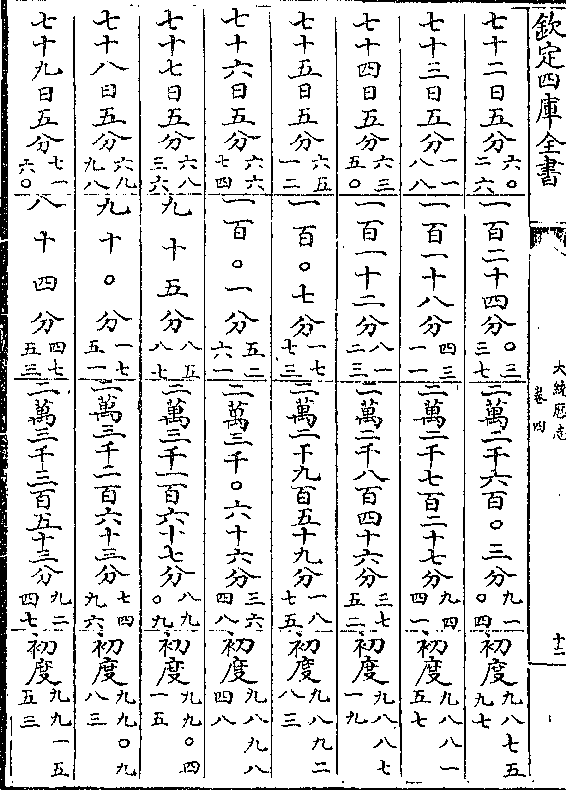 欽定四庫全書
大統歷志
卷四
十二
七十二日五分六〇二六 一百二十四分〇三三七 二萬二千六百〇三分九一〇四 初度九八七五九七
七十三日五分一一八八 一百一十八分四三一一 二萬二千七百二十七分九四四一 初度九八八一五七
七十四日五分六三五〇 一百一十二分八一二三 二萬二千八百四十六分三七五二 初度九八八七一九
七十五日五分六五一二 一百〇七分一七七三 二萬二千九百五十九分一八七五 初度九八九二八三
七十六日五分六六七四 一百〇一分五二六一 二萬三千〇六十六分三六四八 初度九八九八四八
七十七日五分六八三六 九十五分八五八七 二萬三千一百六十七分八九〇九 初度九九〇四一五
七十八日五分六九九八 九十〇分一七五一 二萬三千二百六十三分七四九六 初度九九〇九八三
七十九日五分七一六〇 八十四分四七五三 二萬三千三百五十三分九二四七 初度九九一五五三